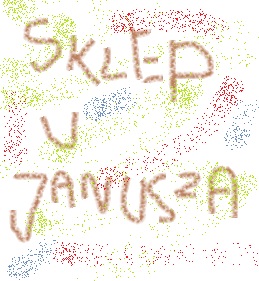 SKLEP
U
JANUKZA